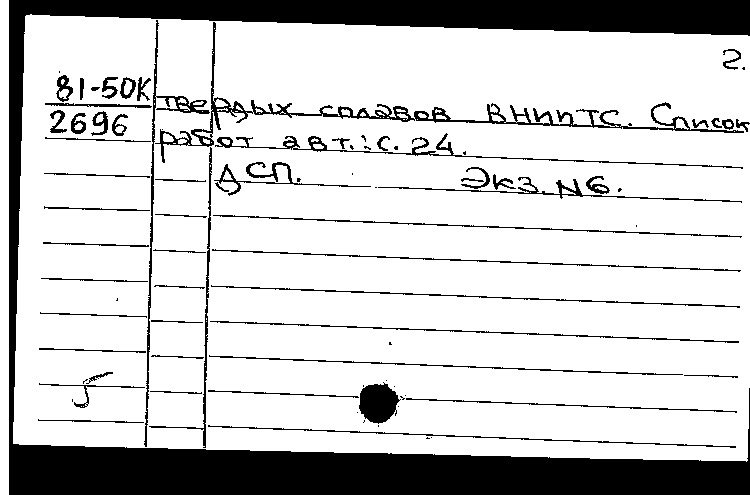 2.
81-50К твердых сплавов ВНИИТС. Список
2696 работ авт.: с. 24.
ДСП. Экз. №6.
5